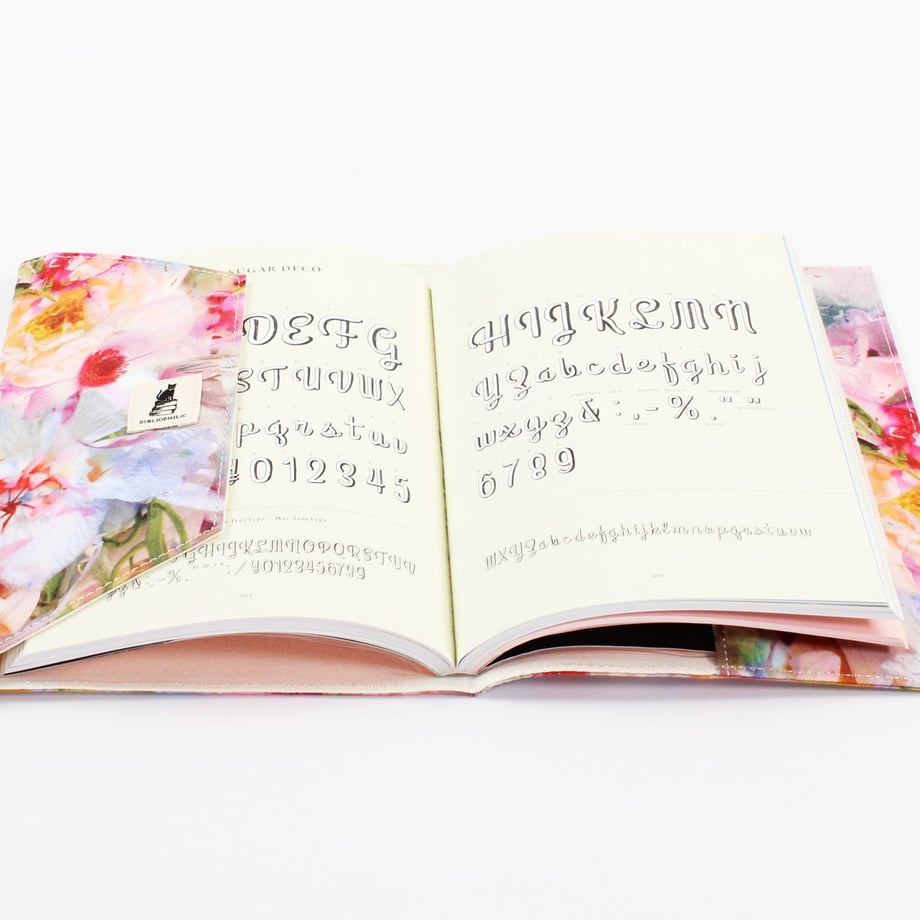 SUGAR DECO
DEFG
STUVWX
pqrstuv
¥012345
TrueType · Mac TrueType
GHIJKLMNOPQRSTUV
&:,-%."":/¥0123456789
BIBLIOPHILIC
HIJKLMN
YZabcdefghij
wxyz&:,-%.""
6789
WXYZabcdefghijklmnopqrstuvw